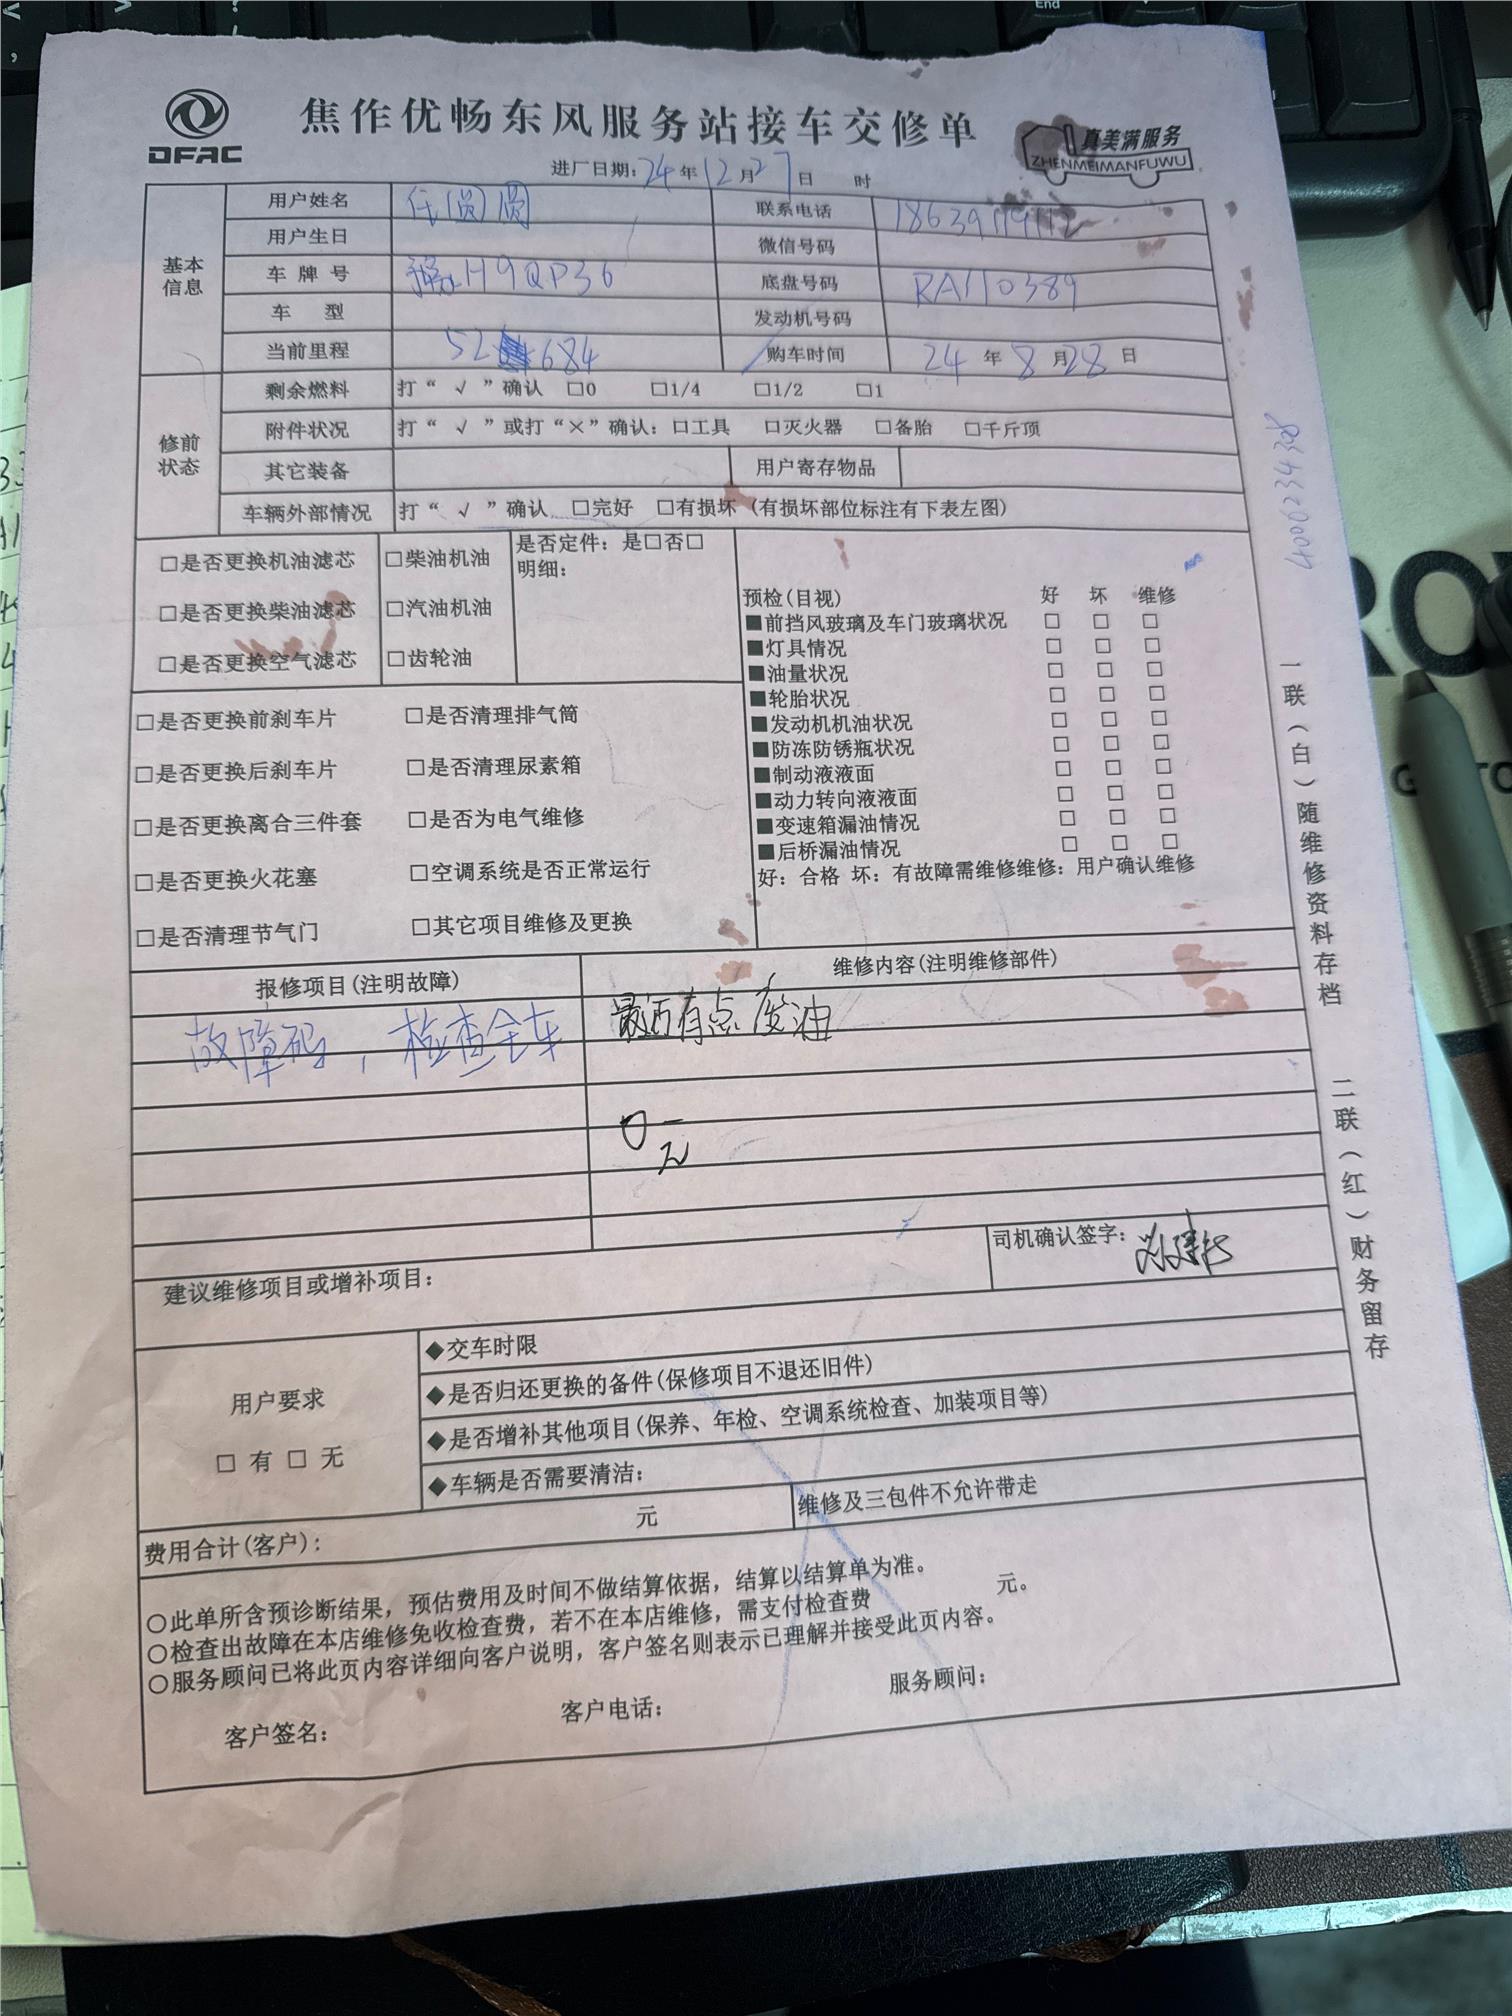 DFAC
焦作优畅东风服务站接车交修单
真美满服务
ZHENMEIMANFUWU
进厂日期: 24 年 12 月 27 日 时
基本信息
用户姓名 任圆圆 联系电话 18639119112
用户生日 微信号码
车牌号 豫H9QP36 底盘号码 RA110389
车型 发动机号码
当前里程 52 684 购车时间 24 年 8 月 28 日
修前状态
剩余燃料 打“ √ ”确认 □0 □1/4 □1/2 □1
附件状况 打“ √ ”或打“×”确认: □工具 □灭火器 □备胎 □千斤顶
其它装备 用户寄存物品
车辆外部情况 打“ √ ”确认 □完好 □有损坏 (有损坏部位标注有下表左图)
4006234308
□是否更换机油滤芯 □柴油机油 是否定件: 是□否□
明细:
□是否更换柴油滤芯 □汽油机油
□是否更换空气滤芯 □齿轮油
□是否更换前刹车片 □是否清理排气筒
□是否更换后刹车片 □是否清理尿素箱
□是否更换离合三件套 □是否为电气维修
□是否更换火花塞 □空调系统是否正常运行
□是否清理节气门 □其它项目维修及更换
预检(目视) 好 坏 维修
■前挡风玻璃及车门玻璃状况 □ □ □
■灯具情况 □ □ □
■油量状况 □ □ □
■轮胎状况 □ □ □
■发动机机油状况 □ □ □
■防冻防锈瓶状况 □ □ □
■制动液液面 □ □ □
■动力转向液液面 □ □ □
■变速箱漏油情况 □ □ □
■后桥漏油情况 □ □ □
好: 合格 坏: 有故障需维修维修: 用户确认维修
报修项目(注明故障) 维修内容(注明维修部件)
故障码, 检查全车 最近有点废油
0元
司机确认签字:
建议维修项目或增补项目:
用户要求
□ 有 □ 无
◆交车时限
◆是否归还更换的备件(保修项目不退还旧件)
◆是否增补其他项目(保养、年检、空调系统检查、加装项目等)
◆车辆是否需要清洁:
费用合计(客户): 元 维修及三包件不允许带走
○此单所含预诊断结果, 预估费用及时间不做结算依据, 结算以结算单为准。
○检查出故障在本店维修免收检查费, 若不在本店维修, 需支付检查费 元。
○服务顾问已将此页内容详细向客户说明, 客户签名则表示已理解并接受此页内容。
客户签名: 客户电话: 服务顾问:
一联(白)随维修资料存档 二联(红)财务留存